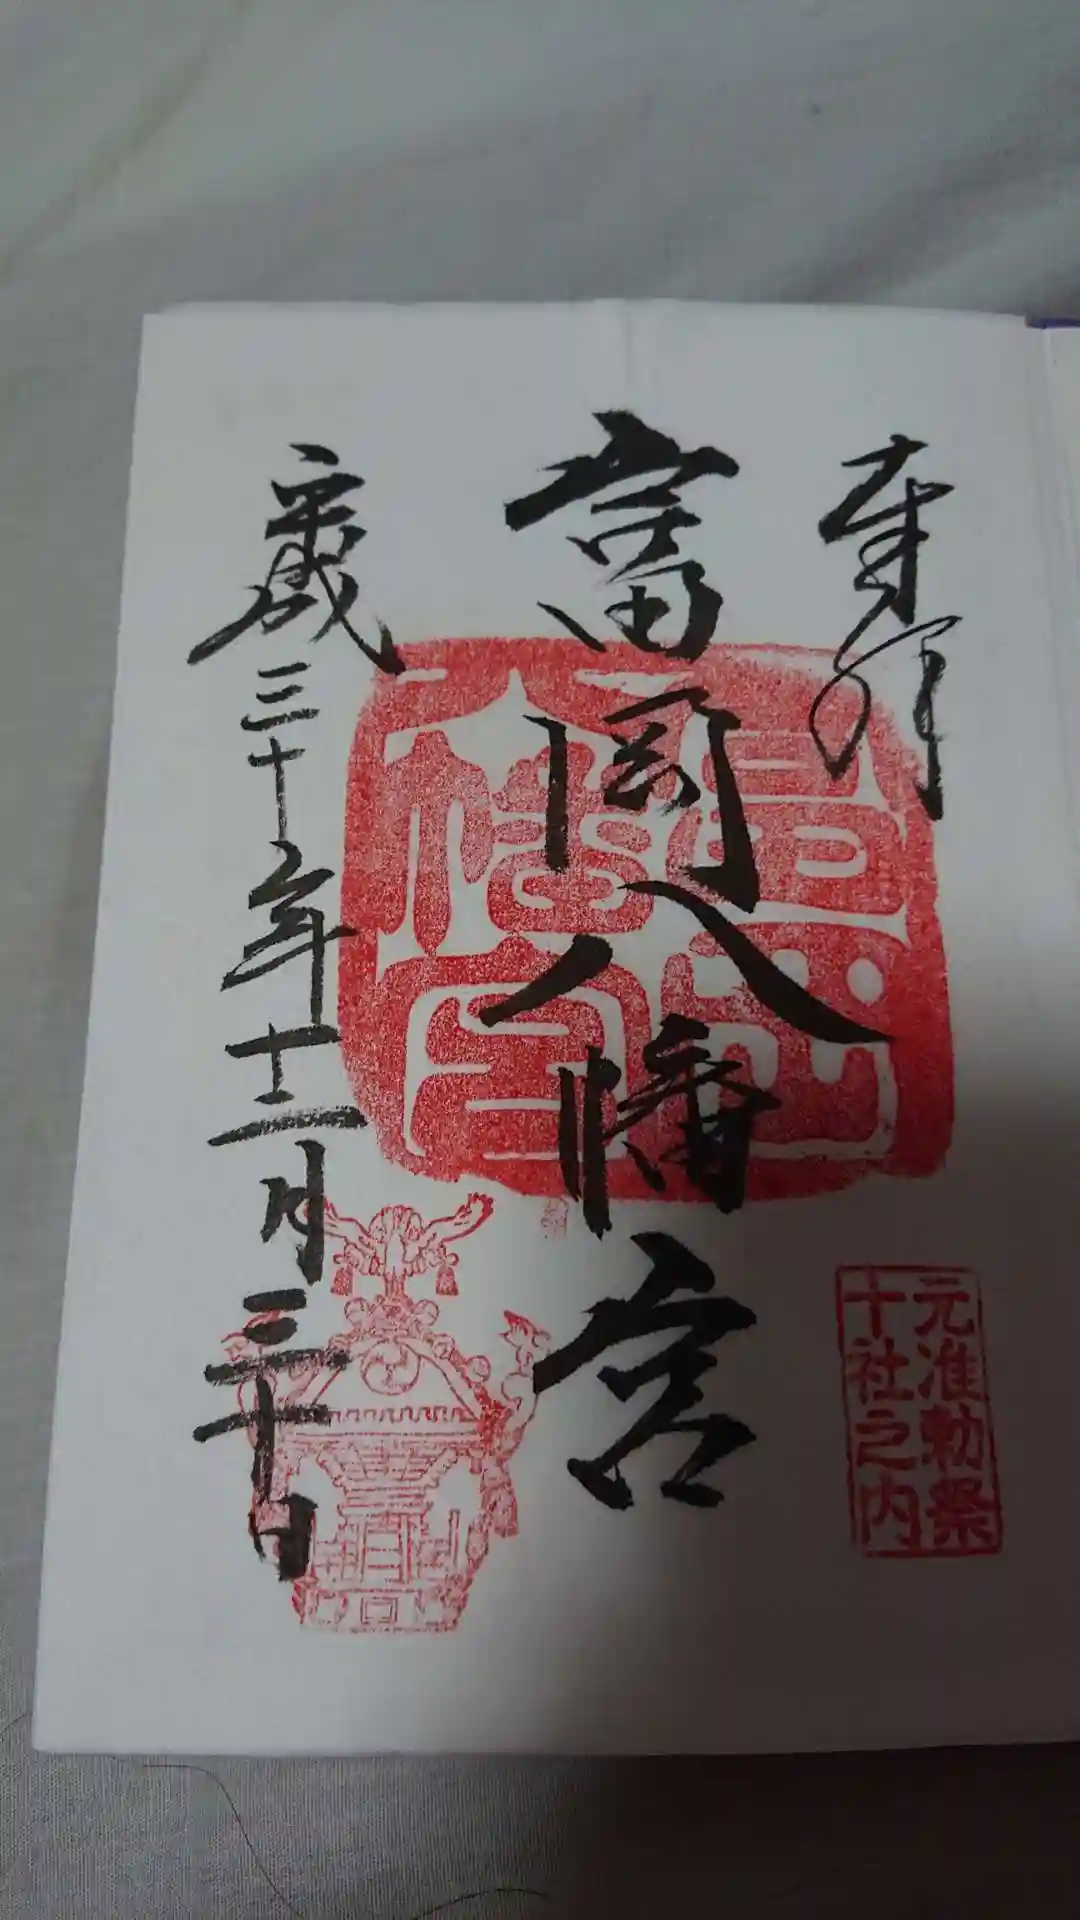 奉拝
元准勅祭
十社之内
富岡八幡宮
平成三十年十二月三十日